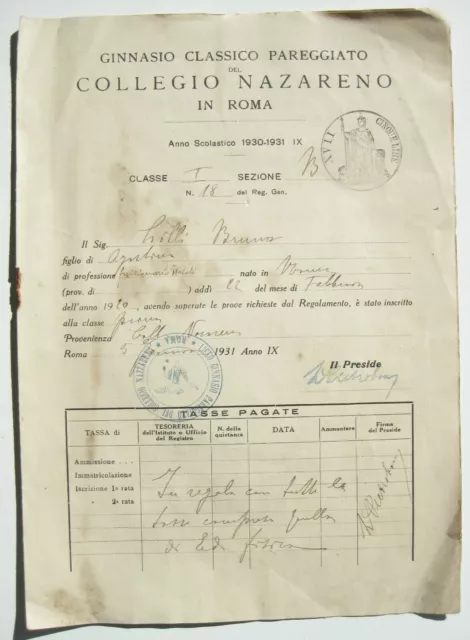 GINNASIO CLASSICO PAREGGIATO
DEL
COLLEGIO NAZARENO
IN ROMA
Anno Scolastico 1930-1931 IX
CLASSE I SEZIONE B
N. 18 del Reg. Gen.
CINQUE LIRE
Il Sig. Bruno
figlio di Agostino
di professione nato in Roma
(prov. di ) addì 22 del mese di Febbraio
dell'anno 1920, avendo superate le prove richieste dal Regolamento, è stato inscritto
alla classe prima
Provenienza Coll. Nazareno
Roma 5 1931 Anno IX
Il Preside
TASSE PAGATE
TASSA di
TESORERIA dell'Istituto o Ufficio del Registro
N. della quietanza
DATA
Ammontare
Firma del Preside
Ammissione . . .
Immatricolazione
Iscrizione 1ª rata
" 2ª rata
In regola con tutte le
tasse compresa quella
di Ed. fisica